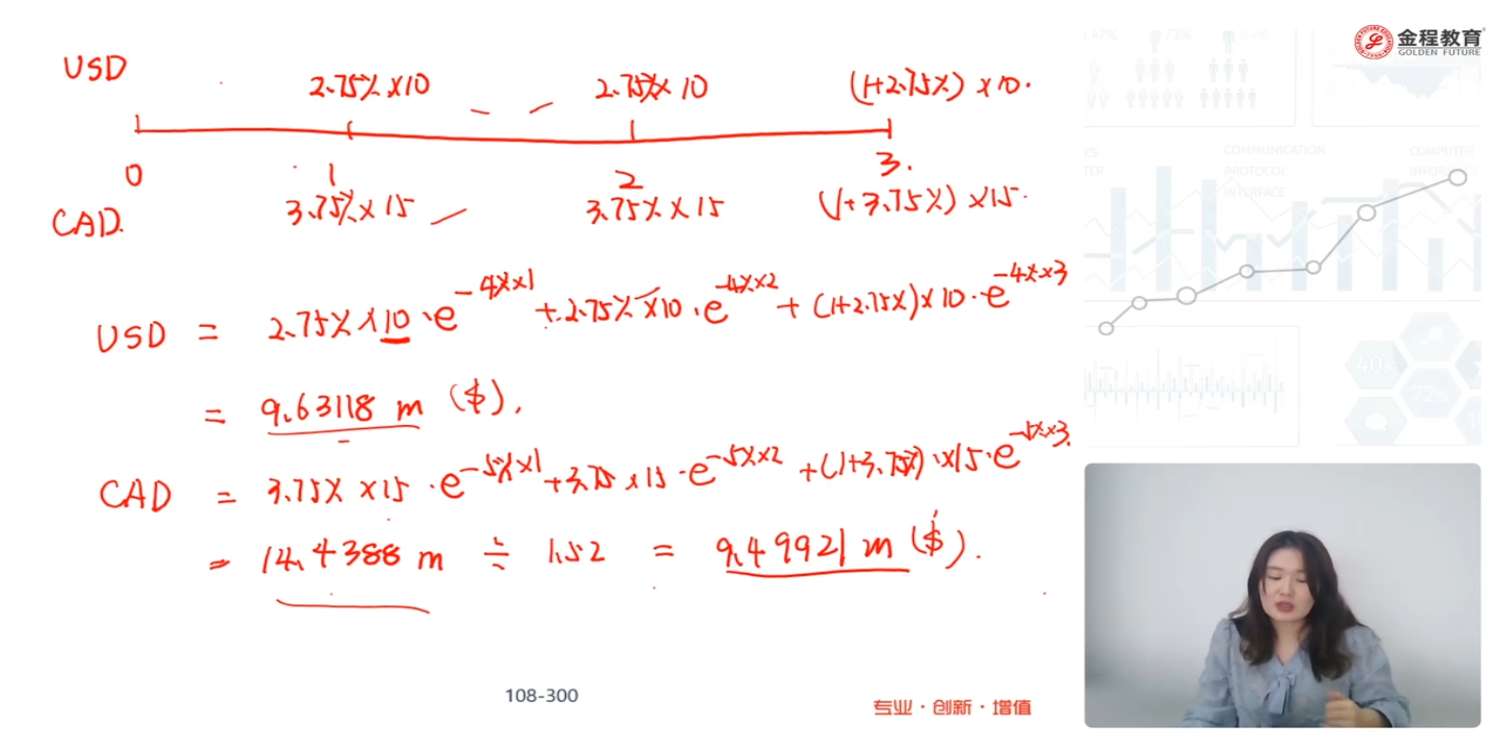 金程教育
GOLDEN FUTURE
USD
2.75% × 10
2.75% × 10
(1+2.75%) × 10.
0
1
2
3.
CAD.
3.75% × 15
3.75% × 15
(1+3.75%) × 15.
USD = 2.75% × 10 · e^{-4%×1} + 2.75% × 10 · e^{-4%×2} + (1+2.75%) × 10 · e^{-4%×3}
= 9.63118 m ($).
CAD = 3.75% × 15 · e^{-5%×1} + 3.75 × 15 · e^{-5%×2} + (1+3.75%) · × 15 · e^{-5%×3}.
= 14.4388 m ÷ 1.52 = 9.49921 m ($).
COMMUNICATION
PROTOCOL
INTERFACE
108-300
专业·创新·增值